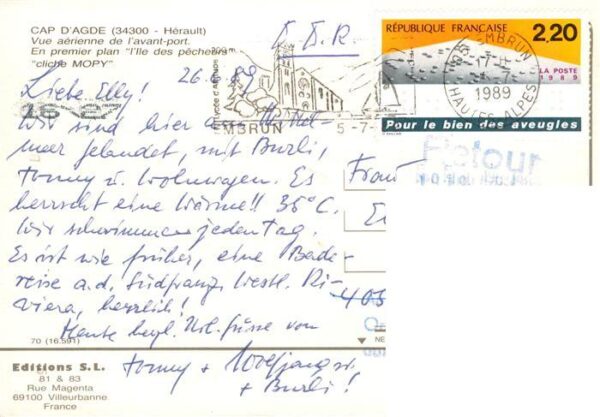 CAP D'AGDE (34300 - Hérault)
Vue aérienne de l'avant-port.
En premier plan "l'Ile des pêcheurs"
"cliche MOPY"
D.D.R.
26.6.89
Liebe Elly!
Wir sind hier am Mittel-
meer gelandet, mit Burli,
Conny u. Wohnwagen. Es
herrscht eine Wärme!! 35°C.
Wir schwimmen jeden Tag.
Es ist wie früher, eine Bade-
reise a.d. Südfranz. westl. Ri-
viera, herrlich!
Heute herzl. Url. Grüsse von
Conny + Wolfgang
+ Burli!
70 (16.591)
Editions S.L.
81 & 83
Rue Magenta
69100 Villeurbanne
France
RÉPUBLIQUE FRANÇAISE 2,20
LA POSTE
1989
Pour le bien des aveugles
EMBRUN
5-7-
1989
HAUTES-ALPES
EMBRUN
5-7-
Retour
Frau
E
405
NE